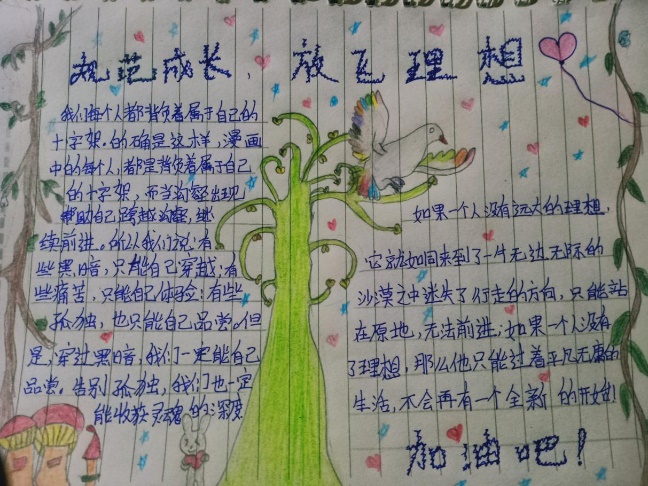 规范成长，放飞理想
我们每个人都背负着属于自己的
十字架。的确是这样，漫画
中的每个人，都是背负着属于自己
的十字架，而当沟壑出现
帮助自己跨越沟壑，继
续前进。所以我们说：有
些黑暗，只能自己穿越；有
些痛苦，只能自己体验；有些
孤独，也只能自己品尝。但
是，穿过黑暗，我们一定能自己
品尝。告别孤独，我们也一定
能收获灵魂的深度
如果一个人没有远大的理想，
它就如同来到了一片无边无际的
沙漠之中迷失了行走的方向，只能站
在原地，无法前进；如果一个人没有
了理想，那么他只能过着平凡无庸的
生活，不会再有一个全新的开始！
加油吧！